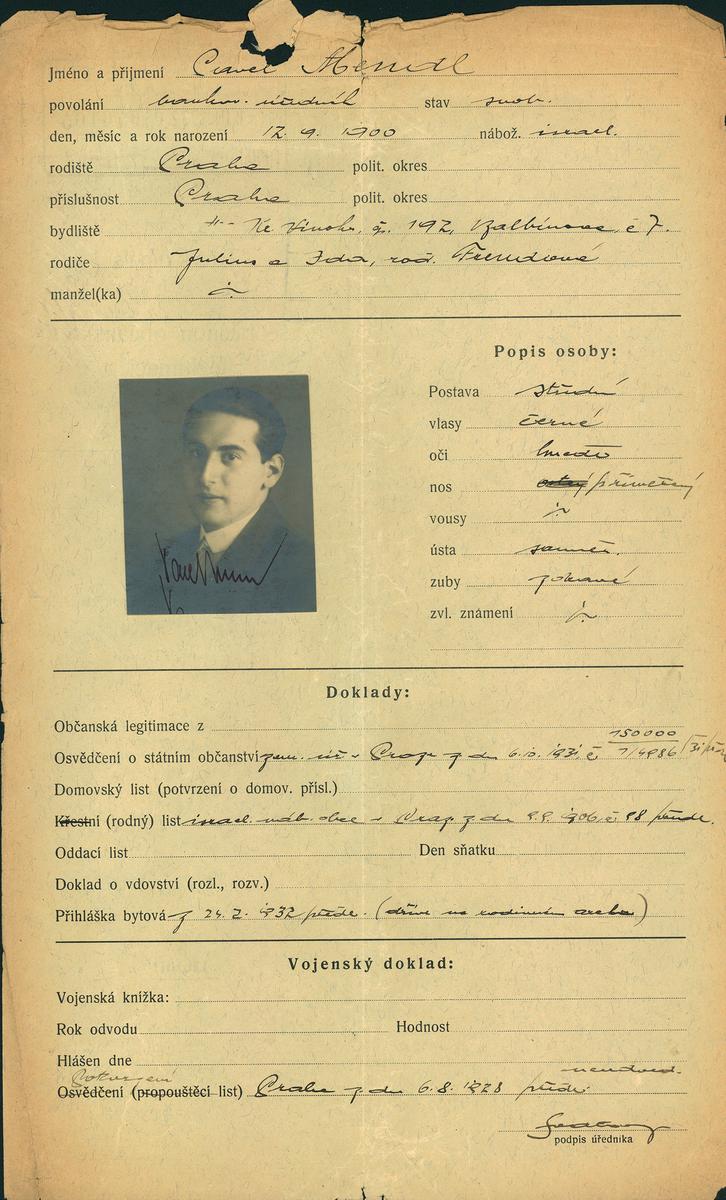 Jméno a přijmení Pavel
povolání bankov. úředník stav svob.
den, měsíc a rok narození 12. 9. 1900 nábož. israel.
rodiště Praha polit. okres
příslušnost Praha polit. okres
bydliště Kr. Vinohr. čp. 192, Balbínova č 7.
rodiče Julius a Ida, roz. Freundová
manžel(ka)
Popis osoby:
Postava střední
vlasy černé
oči hnědé
nos ostrý přiměřený
vousy
ústa souměr.
zuby zdravé
zvl. znamení
Doklady:
Občanská legitimace z
150000
Osvědčení o státním občanství zem. úř. v Praze z dn 6.10. 1931 č 1/4986
Domovský list (potvrzení o domov. přísl.)
Křestní (rodný) list israel. náb. obce v Praze z dn 9.9. 1906 č 98
Oddací list Den sňatku
Doklad o vdovství (rozl., rozv.)
Přihláška bytová z 24. 2. 1932 předl. (dříve na rodinném archu)
Vojenský doklad:
Vojenská knížka:
Rok odvodu Hodnost
Hlášen dne
Potvrzení neodved.
Osvědčení (propouštěcí list) Praha z dn 6.8. 1928 předl.
podpis úředníka